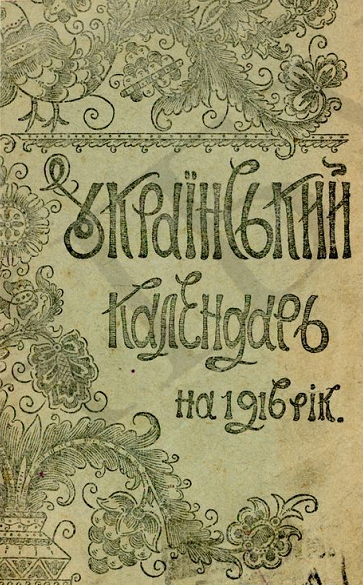 Український
календарь
на 1916 рік.